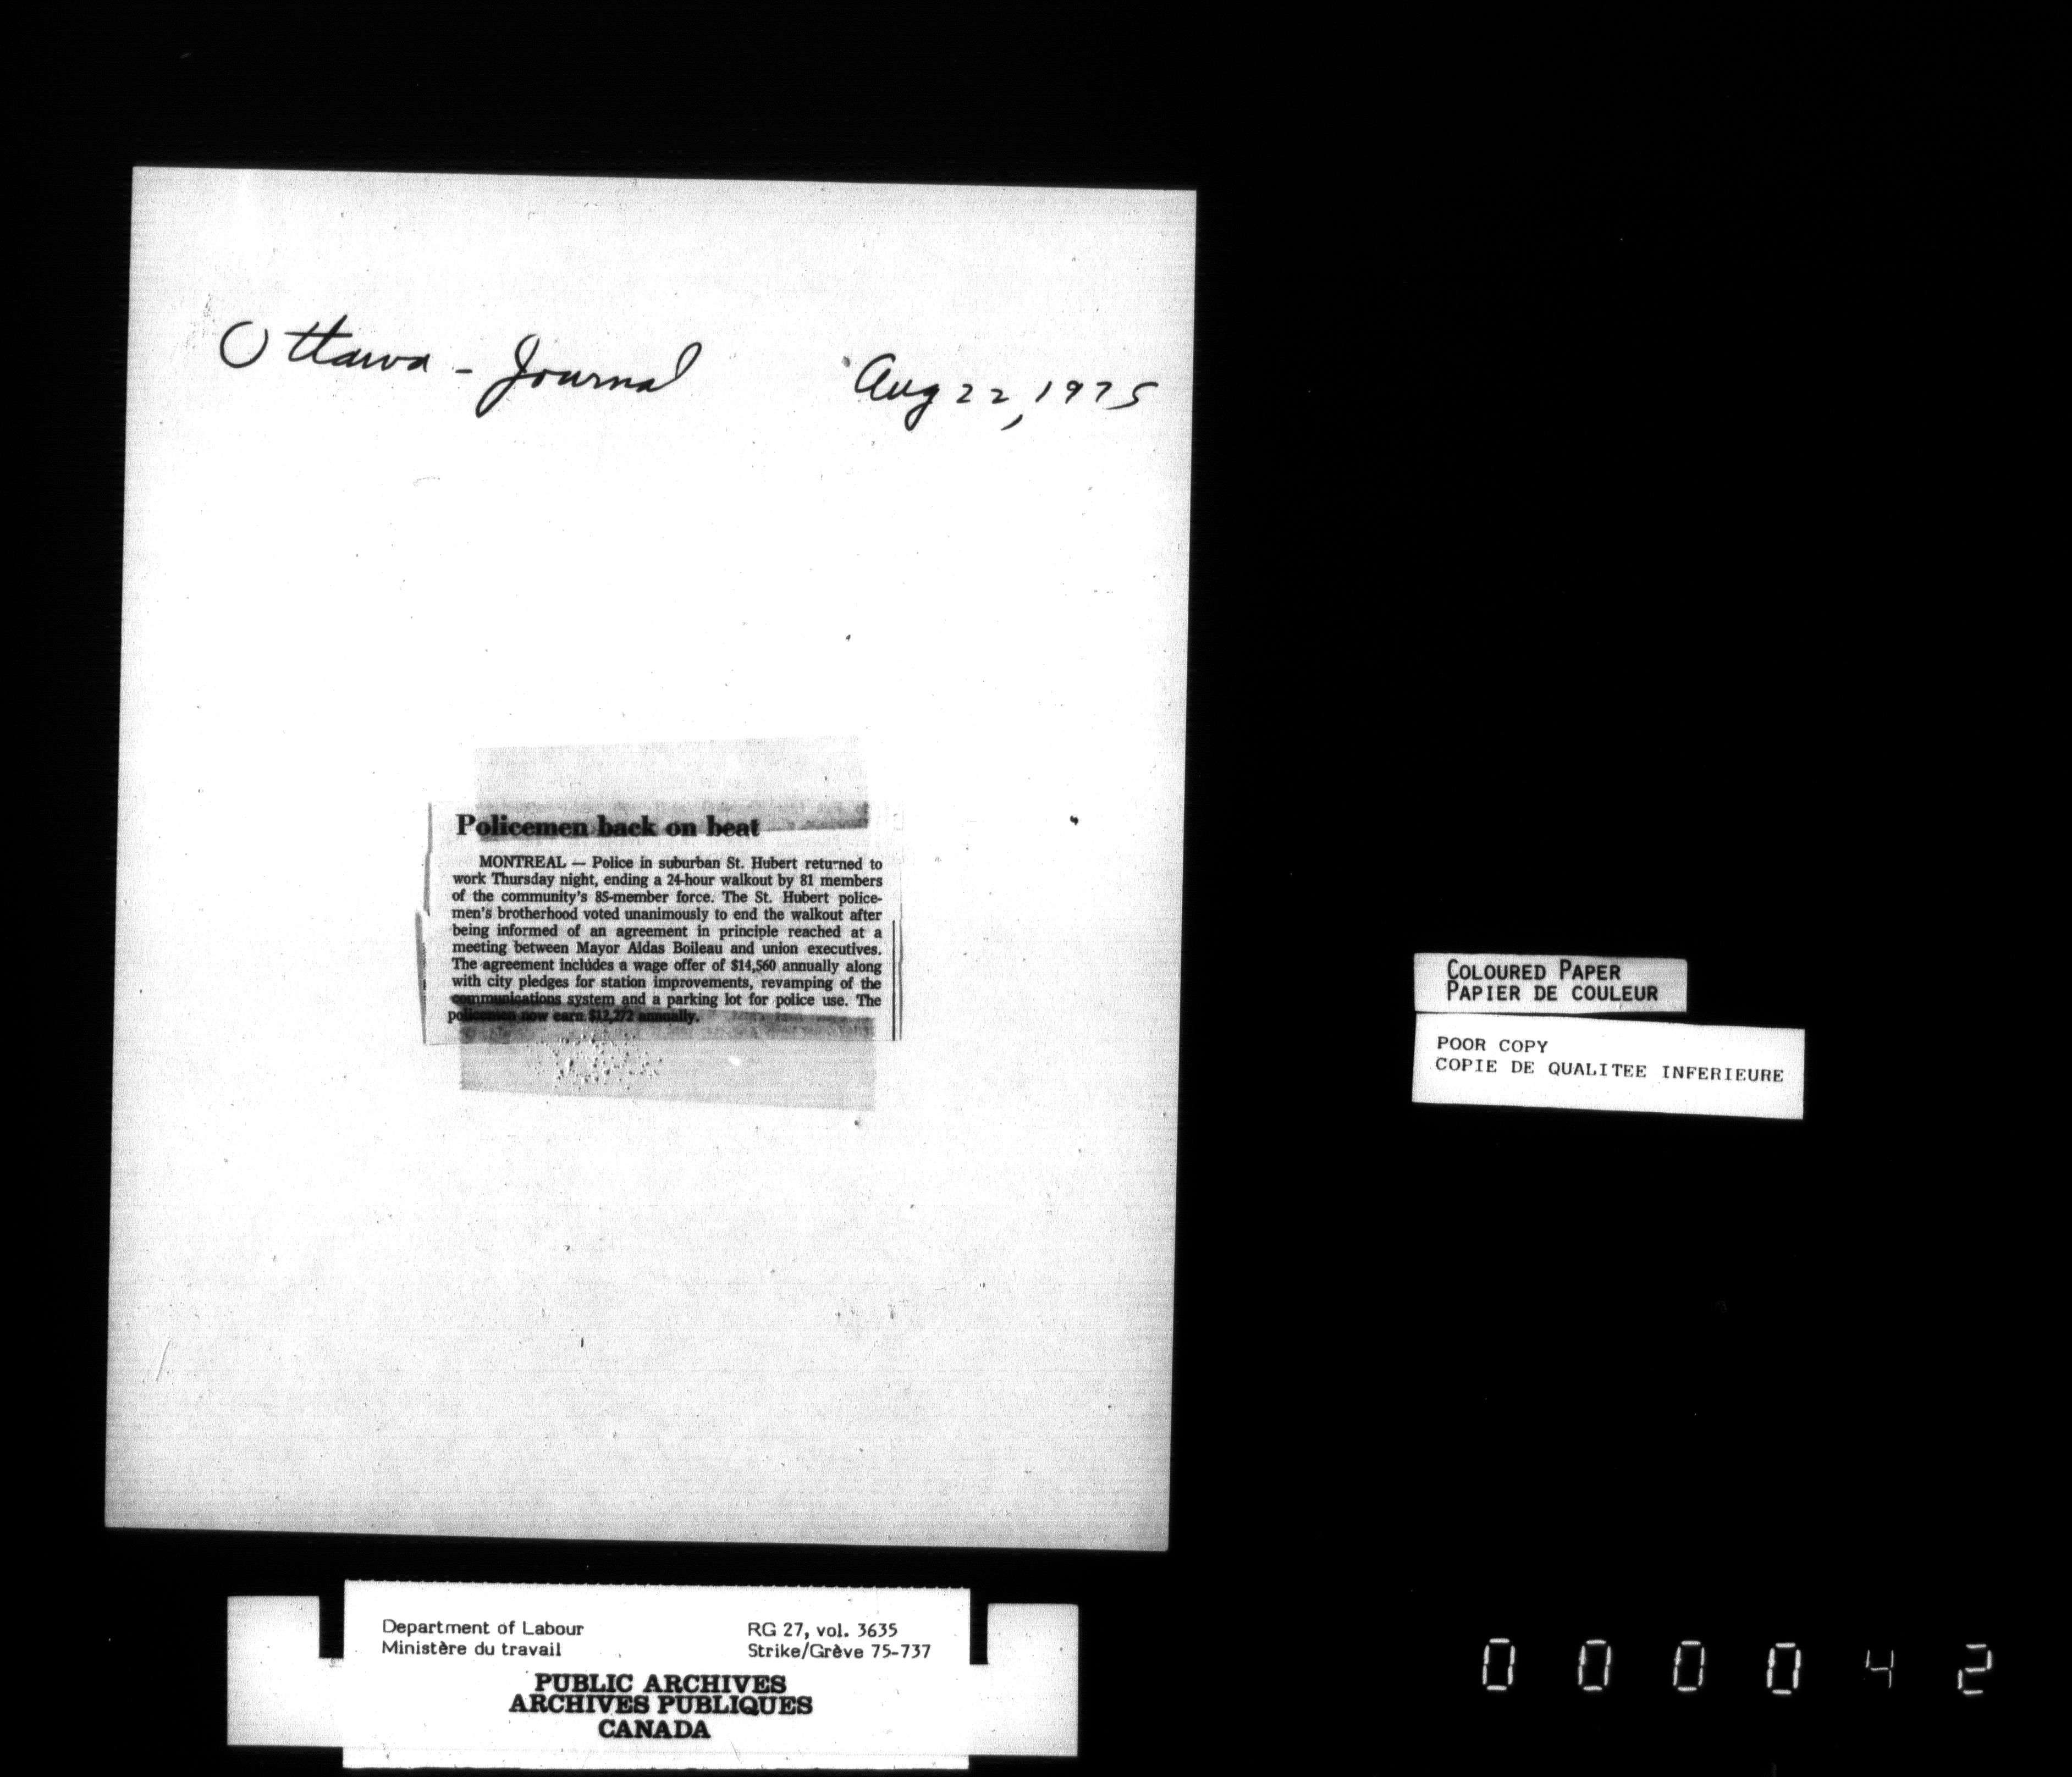 Ottawa - Journal Aug 22, 1975
Policemen back on beat
MONTREAL — Police in suburban St. Hubert returned to
work Thursday night, ending a 24-hour walkout by 81 members
of the community's 85-member force. The St. Hubert police-
men's brotherhood voted unanimously to end the walkout after
being informed of an agreement in principle reached at a
meeting between Mayor Aldas Boileau and union executives.
The agreement includes a wage offer of $14,560 annually along
with city pledges for station improvements, revamping of the
communications system and a parking lot for police use. The
policemen now earn $12,272 annually.
COLOURED PAPER
PAPIER DE COULEUR
POOR COPY
COPIE DE QUALITEE INFERIEURE
Department of Labour RG 27, vol. 3635
Ministère du travail Strike/Grève 75-737
PUBLIC ARCHIVES
ARCHIVES PUBLIQUES
CANADA
000042